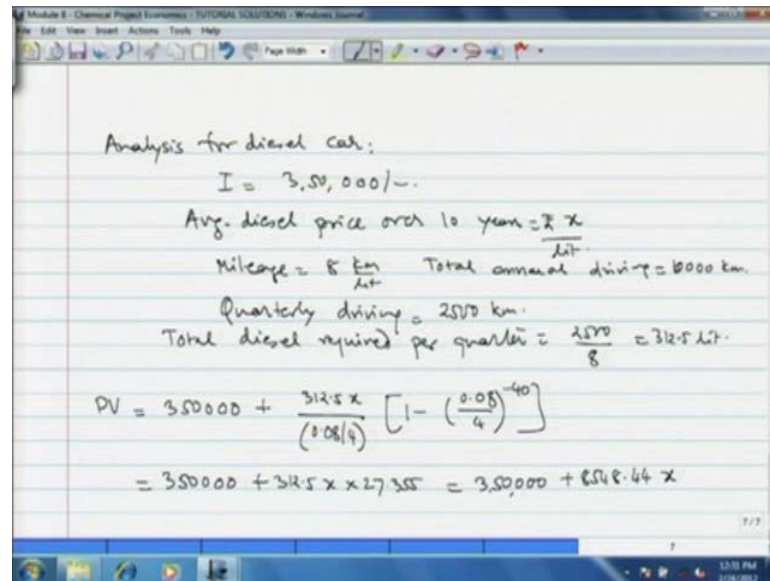 Module 8 - Chemical Project Economics - TUTORIAL SOLUTIONS - Windows Journal
File Edit View Insert Actions Tools Help
Page Width
Analysis for diesel car:
I = 3,50,000/-.
Avg. diesel price over 10 year = ₹ x / lit.
Mileage = 8 km/lit Total annual driving = 10000 km.
Quarterly driving = 2500 km.
Total diesel required per quarter = 2500/8 = 312.5 lit.
PV = 350000 + 312.5 x / (0.08/4) [1 - (0.08/4)^-40]
= 350000 + 312.5 x × 27.355 = 3,50,000 + 8548.44 x
7/7
7
12:31 PM